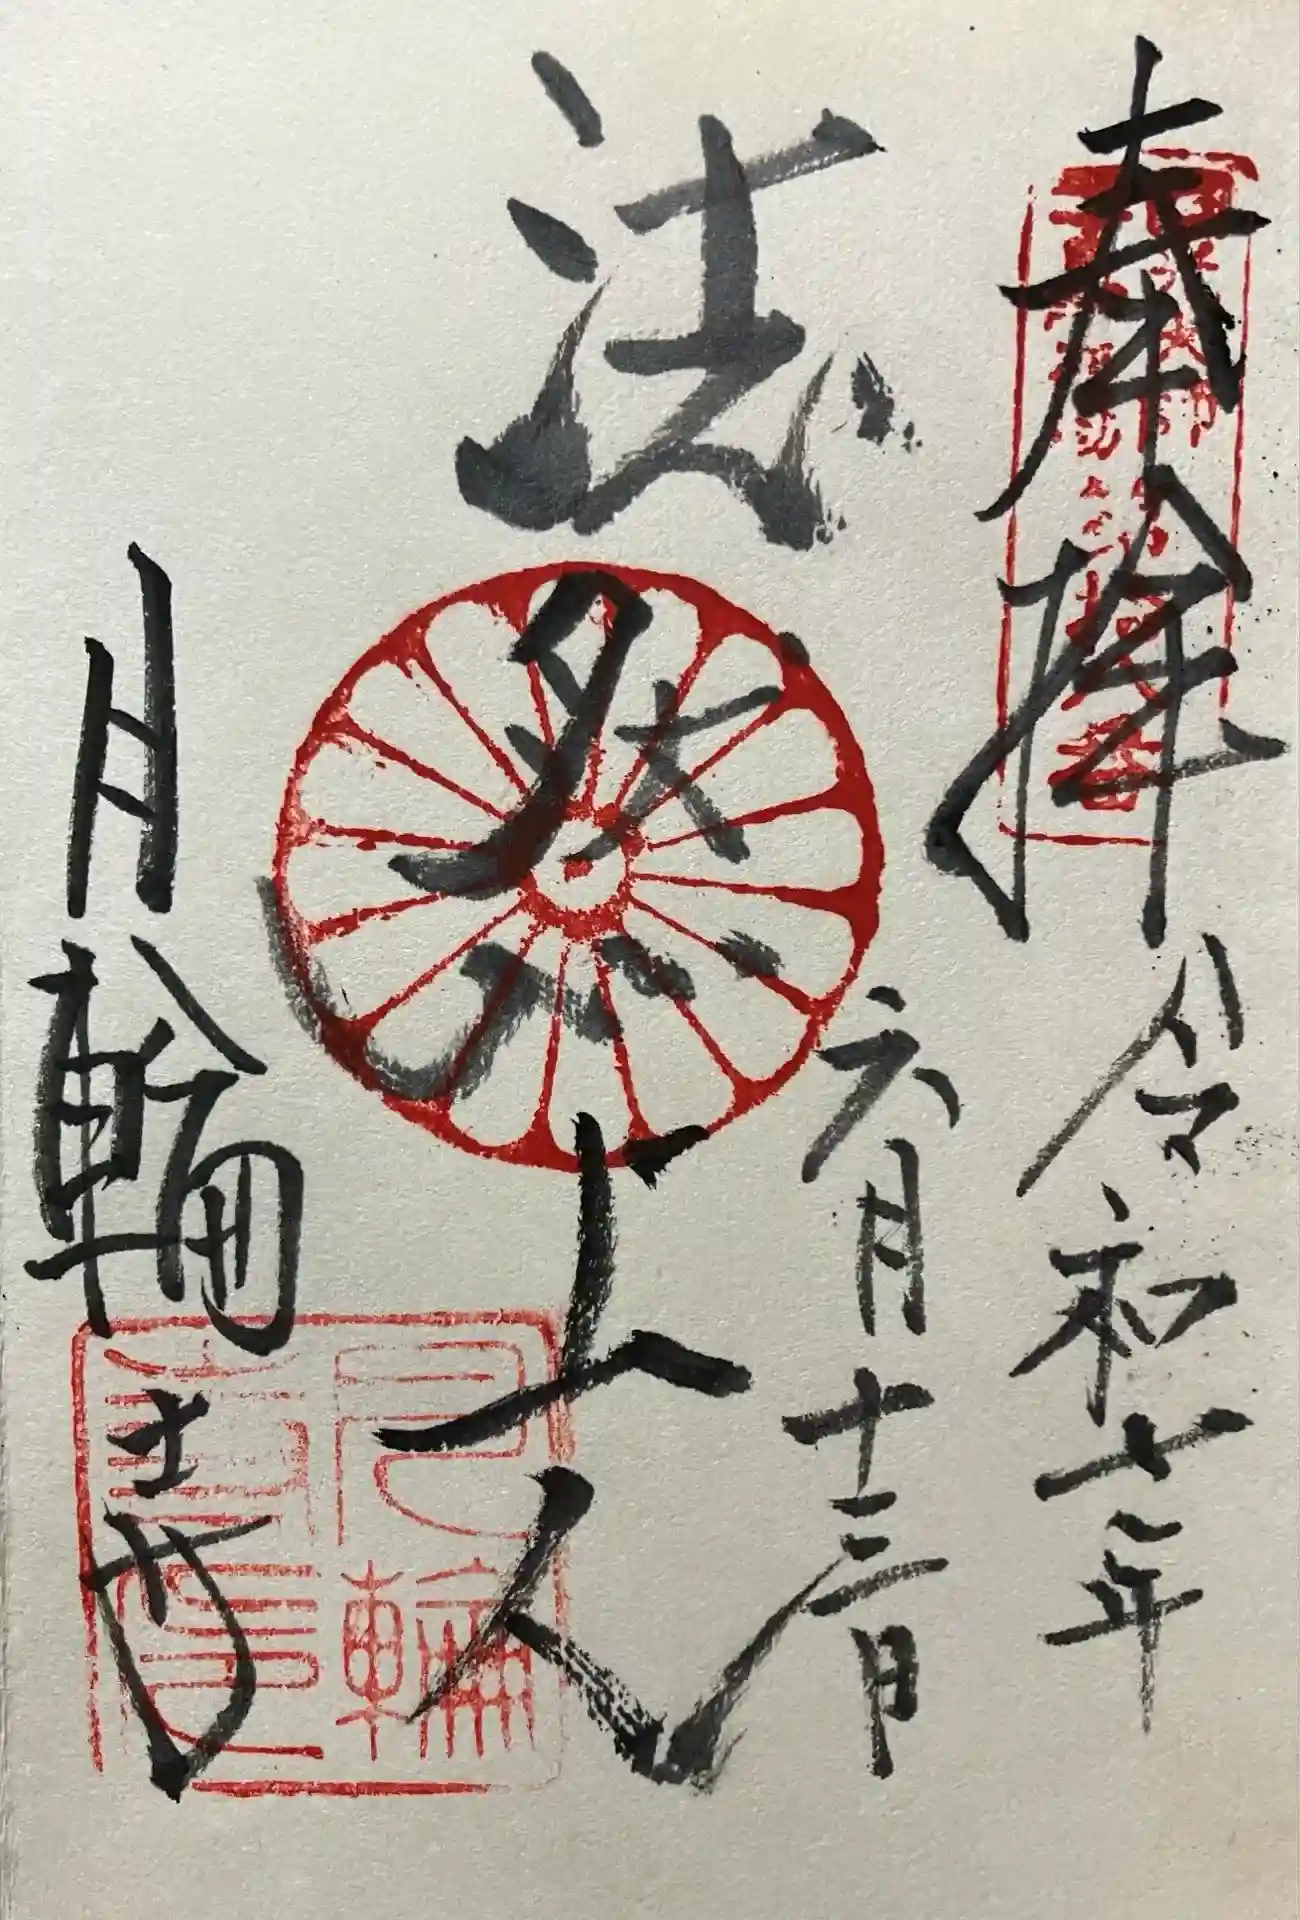 奉拝
令和七年
六月十三日
法然上人
月輪寺
月輪寺印